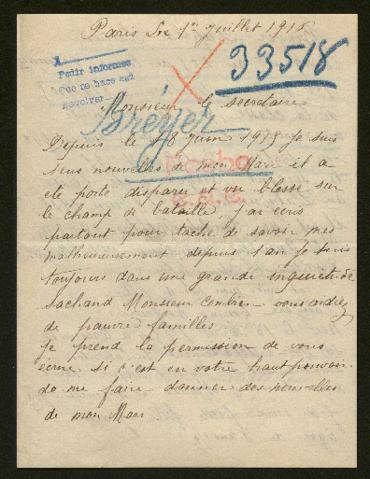 Paris le 1er juillet 1916
33518
Pedir informes
que se hace
Monsieur le secretaire
Breyer
Depuis le 8 juin 1915 je suis
sans nouvelles de mon Mari il a
ete porte disparu et vu blesse sur
le champ de bataille j'ai ecris
partout pour tache de savoir mes
malheureusement depuis 1 an je suis
toujours dans une grande inquietude
sachand Monsieur combien vous aidiez
de pauvre familles
je prend la permission de vous
ecrire si c'est en votre haut pouvoir
de me faire donner des nouvelles
de mon Mari